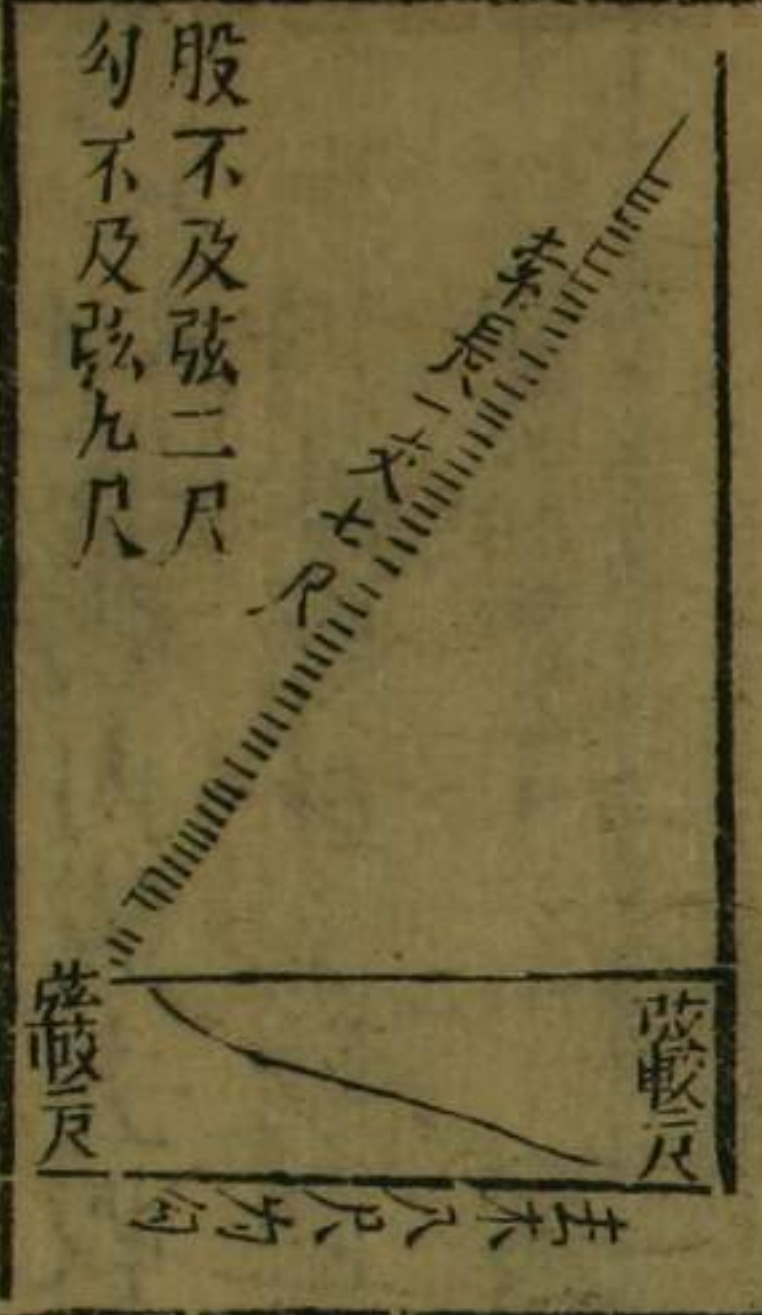 股不及弦二尺
勾不及弦九尺
索長一丈七尺
弦較二尺
弦較二尺
去木八尺为勾